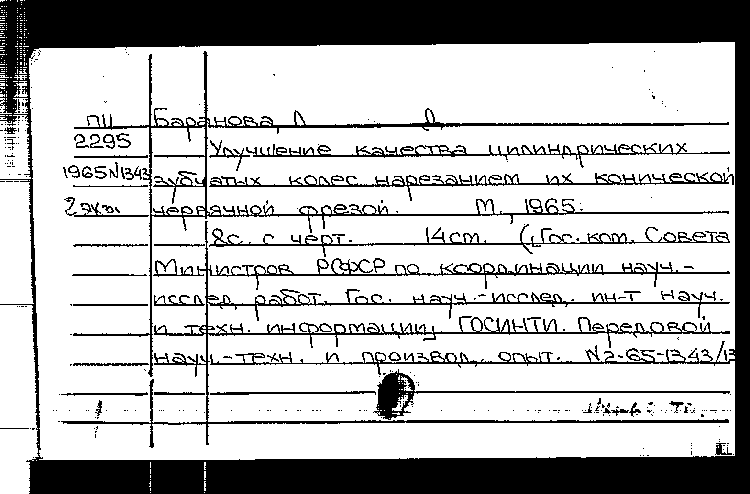 ПЦ Баранова, Л Л.
2295 Улучшение качества цилиндрических
1965N1343 зубчатых колес нарезанием их конической
2 экз. червячной фрезой. М., 1965.
8с. с черт. 14см. (Гос. ком. Совета
Министров РСФСР по координации науч.-
исслед. работ. Гос. науч.-исслед. ин-т науч.
и техн. информации, ГОСИНТИ. Передовой
науч.-техн. и производ. опыт. N2-65-1343/13